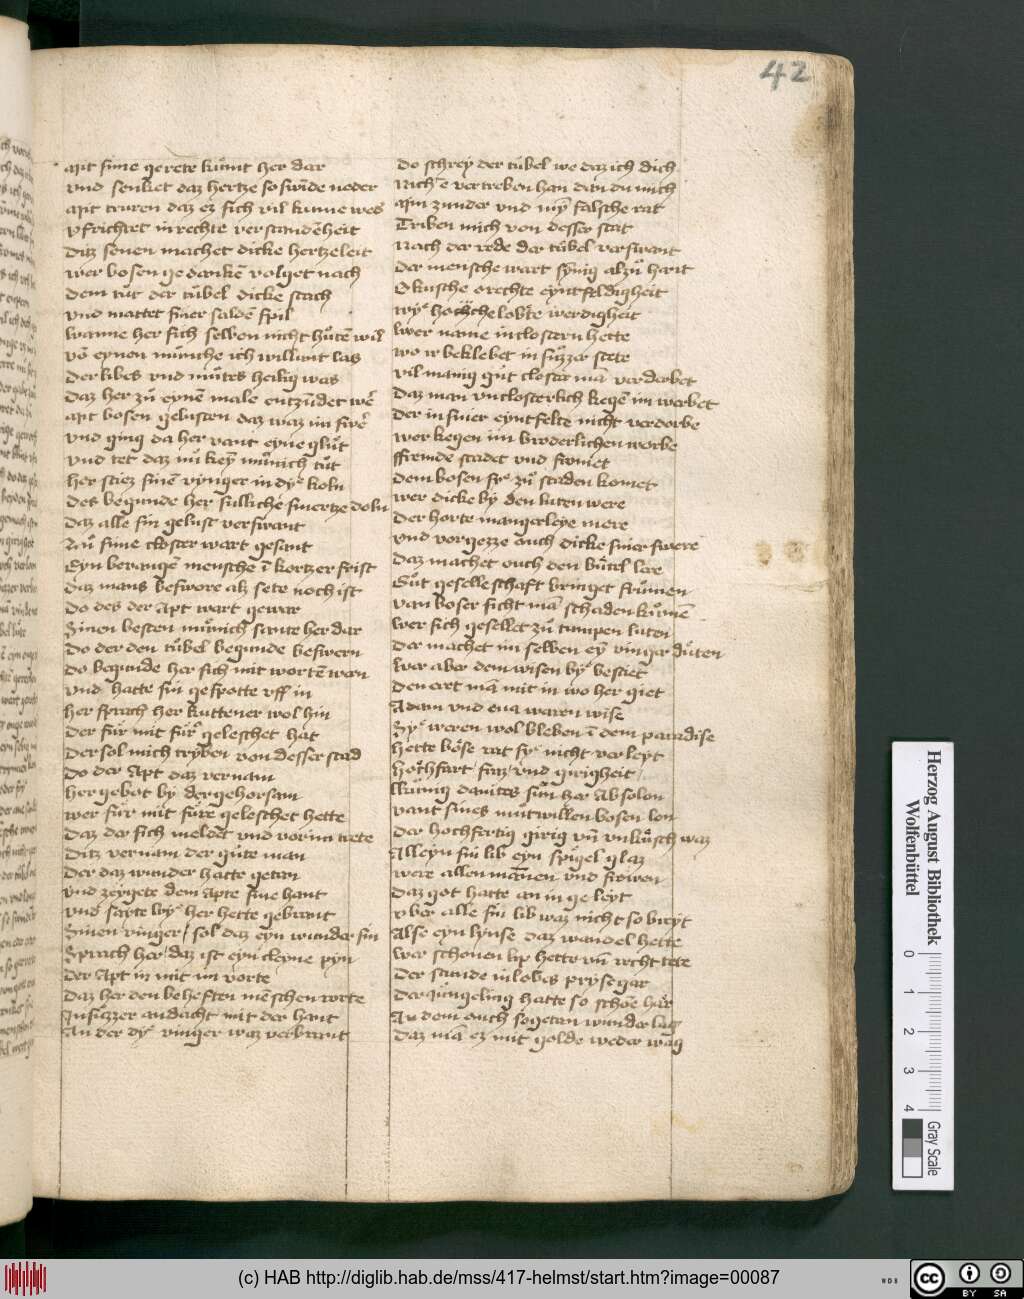 42
Mit sime gerete kumt her dar
vnd senket daz hertze so swinde neder
Mit truren daz ez sich vil kume wes
vfrichtet in rechte verstandēheit
Ditz senen machet dicke hertzeleit
wer bosen gedankē volget nach
dem tůt der tůbel dicke scach
vnd mattet siner saldē spil
wanne her sich selben nicht hůtē wil
vō eynen můniche ich willunt las
Der libes vnd můtes heilig was
Daz her zů eynē male entzůdet wē
Mit bosen gelusten daz waz im swē
vnd ging da her vant eyne glůt
vnd tet daz nů keÿ můnich tůt
her stiez sinē vynger in dy koln
Des begunde her sulliche smertze doln
Daz alle sin gelust verswant
Zů sime closter wart gesant
Eyn berangē mensche ī kortzer frist
daz mans beswore alz sete noch ist
Do des der Apt wart gewar
Sinen besten můnich sante her dar
Do der den tůbel begunde beswern
Do begunde her sich mit wortē wern
vnd hatte sin gespotte vff in
her sprach her kuttener wol hin
Der fůr mit fůr geleschet hat
Der sol mich tryben von desser stad
Do der Apt daz vernam
her gebot by der gehorsam
wer fůr mit fůre geleschet hette
Daz der sich meldet vnd vorim trete
Ditz vernam der gůte man
Der daz wunder hatte getan
vnd zeygete dem Apte sine hant
vnd sayte wy her hette gebrant
Sinen vinger / sol daz eyn wunder sin
Sprach her / daz ist eyn cleyne pyn
Der Apt in mit im vorte
Daz her den beheften mēschen rorte
In sůzzer andacht mit der hant
An der dy vinger waz verbrant
Do schrey der tůbel we daz ich dich
Nich e vertreben han dan du mich
Min zunder vnd mȳ falsche rat
Triben mich von desser stat
Nach der rede der tůbel verswant
Der mensche wart synnig alzů hant
O kusche o rechte eyntfeldigheit
wy hoch lobt e werdigheit
wer name in clostern hette
wo ir beklebet in sůzzer stete
vil manig gůt closter mā verderbet
Daz man vnclosterlich kegē im werbet
Der in siner eyntfelte nicht verdorbe
wer kegen im broderlichen worbe
ffremde scadet vnd fromet
dem bosen sy zů scaden komet
wer dicke by den luten were
Der horte mangerleye mere
vnd vorgezze ouch dicke siner swere
Daz machet ouch den bůtel lere
Gůt geselleschaft bringet frůmen
van boser sicht mā schaden kůmē
wer sich gesellet zů tumpen luten
Der machet im selben eȳ vinger důten
wer aber dem wisen by bestiet
Den ert mā mit in wo her giet
Adam vnd eua waren wise
Sy weren wol bleben ī dem paradise
hette bőse rat sy nicht verleyt
hochfart / fraz / vnd girigheit /
kůnig dauites sůn her Absolon
vant sines mutwillen bosen lon
Der hochfertig girig vn vnkůsch waz
Alleyn sin lib eyn spigel glaz
were allen mannen vnd frowen
Daz got hatte an in geleyt
vber alle sin lib waz nicht so breyt
Alse eyn lynse daz wandel hette
wer schonen lip hette vn recht tete
Der stunde in lobes pryse gar
Der Jůngeling hatte so schőe har
An dem ouch sogetan wunder lag
Daz mā ez mit golde weder wag
Herzog August Bibliothek
Wolfenbüttel
0 1 2 3 4
Gray Scale
(c) HAB http://diglib.hab.de/mss/417-helmst/start.htm?image=00087
WDB
cc BY SA